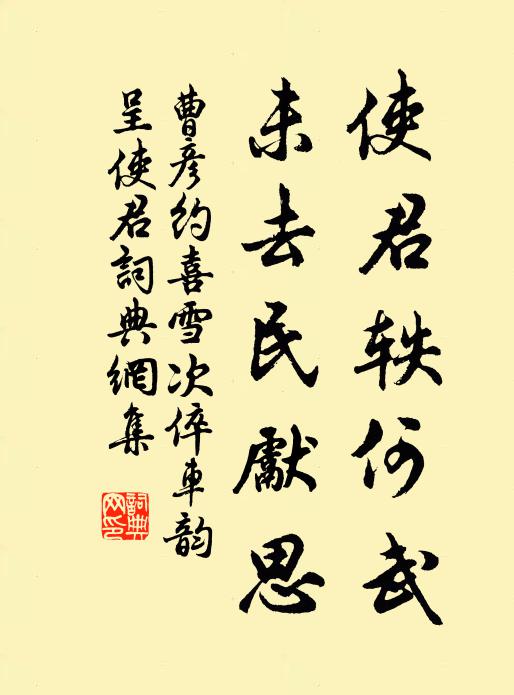 使君轶何武
未去民獻思
曹彦约喜雪次倅車韵
呈使君詞典網集
詞典网印